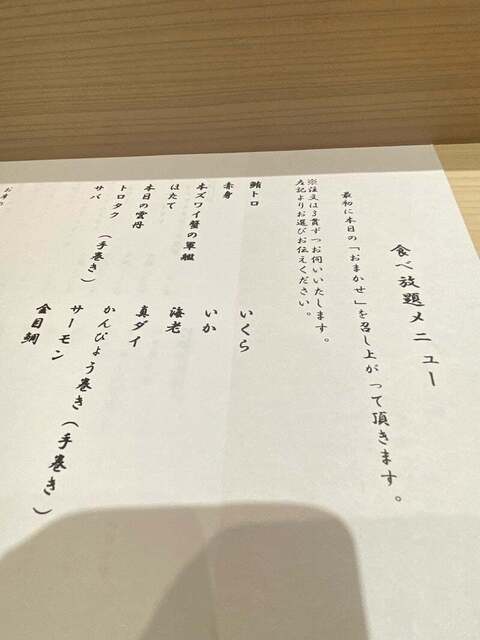 食べ放題メニュー
最初に本日の「おまかせ」を召し上がって頂きます。
※注文は3貫ずつお伺いいたします。
左記よりお選びお伝えください。
鮪トロ
いくら
赤身
いか
本ズワイ蟹の軍艦
海老
ほたて
真ダイ
本日の雲丹
かんぴょう巻き(手巻き)
トロタク(手巻き)
サーモン
サバ
金目鯛